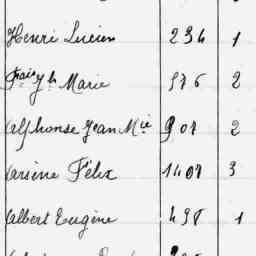 Henri Lucien 234 1
Marie 576 2
Alphonse Jean Mie 901 2
Arsène Félix 1401 3
Albert Eugène 498 1